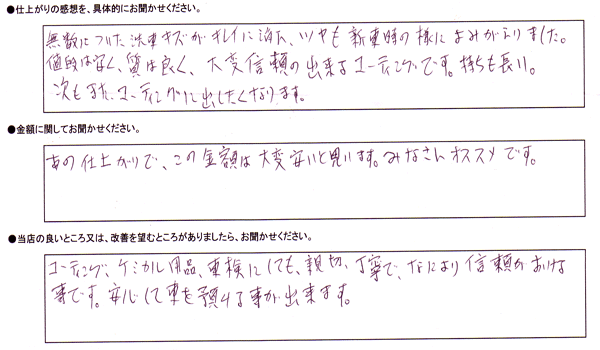 ●仕上がりの感想を、具体的にお聞かせください。
無数についた洗車キズがキレイに消え、ツヤも新車時の様によみがえりました。
値段は安く、質は良く、大変信頼の出来るコーティングです。持ちも長い。
次もまた、コーティングに出したくなります。
●金額に関してお聞かせください。
あの仕上がりで、この金額は大変安いと思います。みなさんオススメです。
●当店の良いところ又は、改善を望むところがありましたら、お聞かせください。
コーティング、ケミカル用品、車検にしても、親切、丁寧で、なにより信頼がおける
事です。安心して車を預ける事が出来ます。